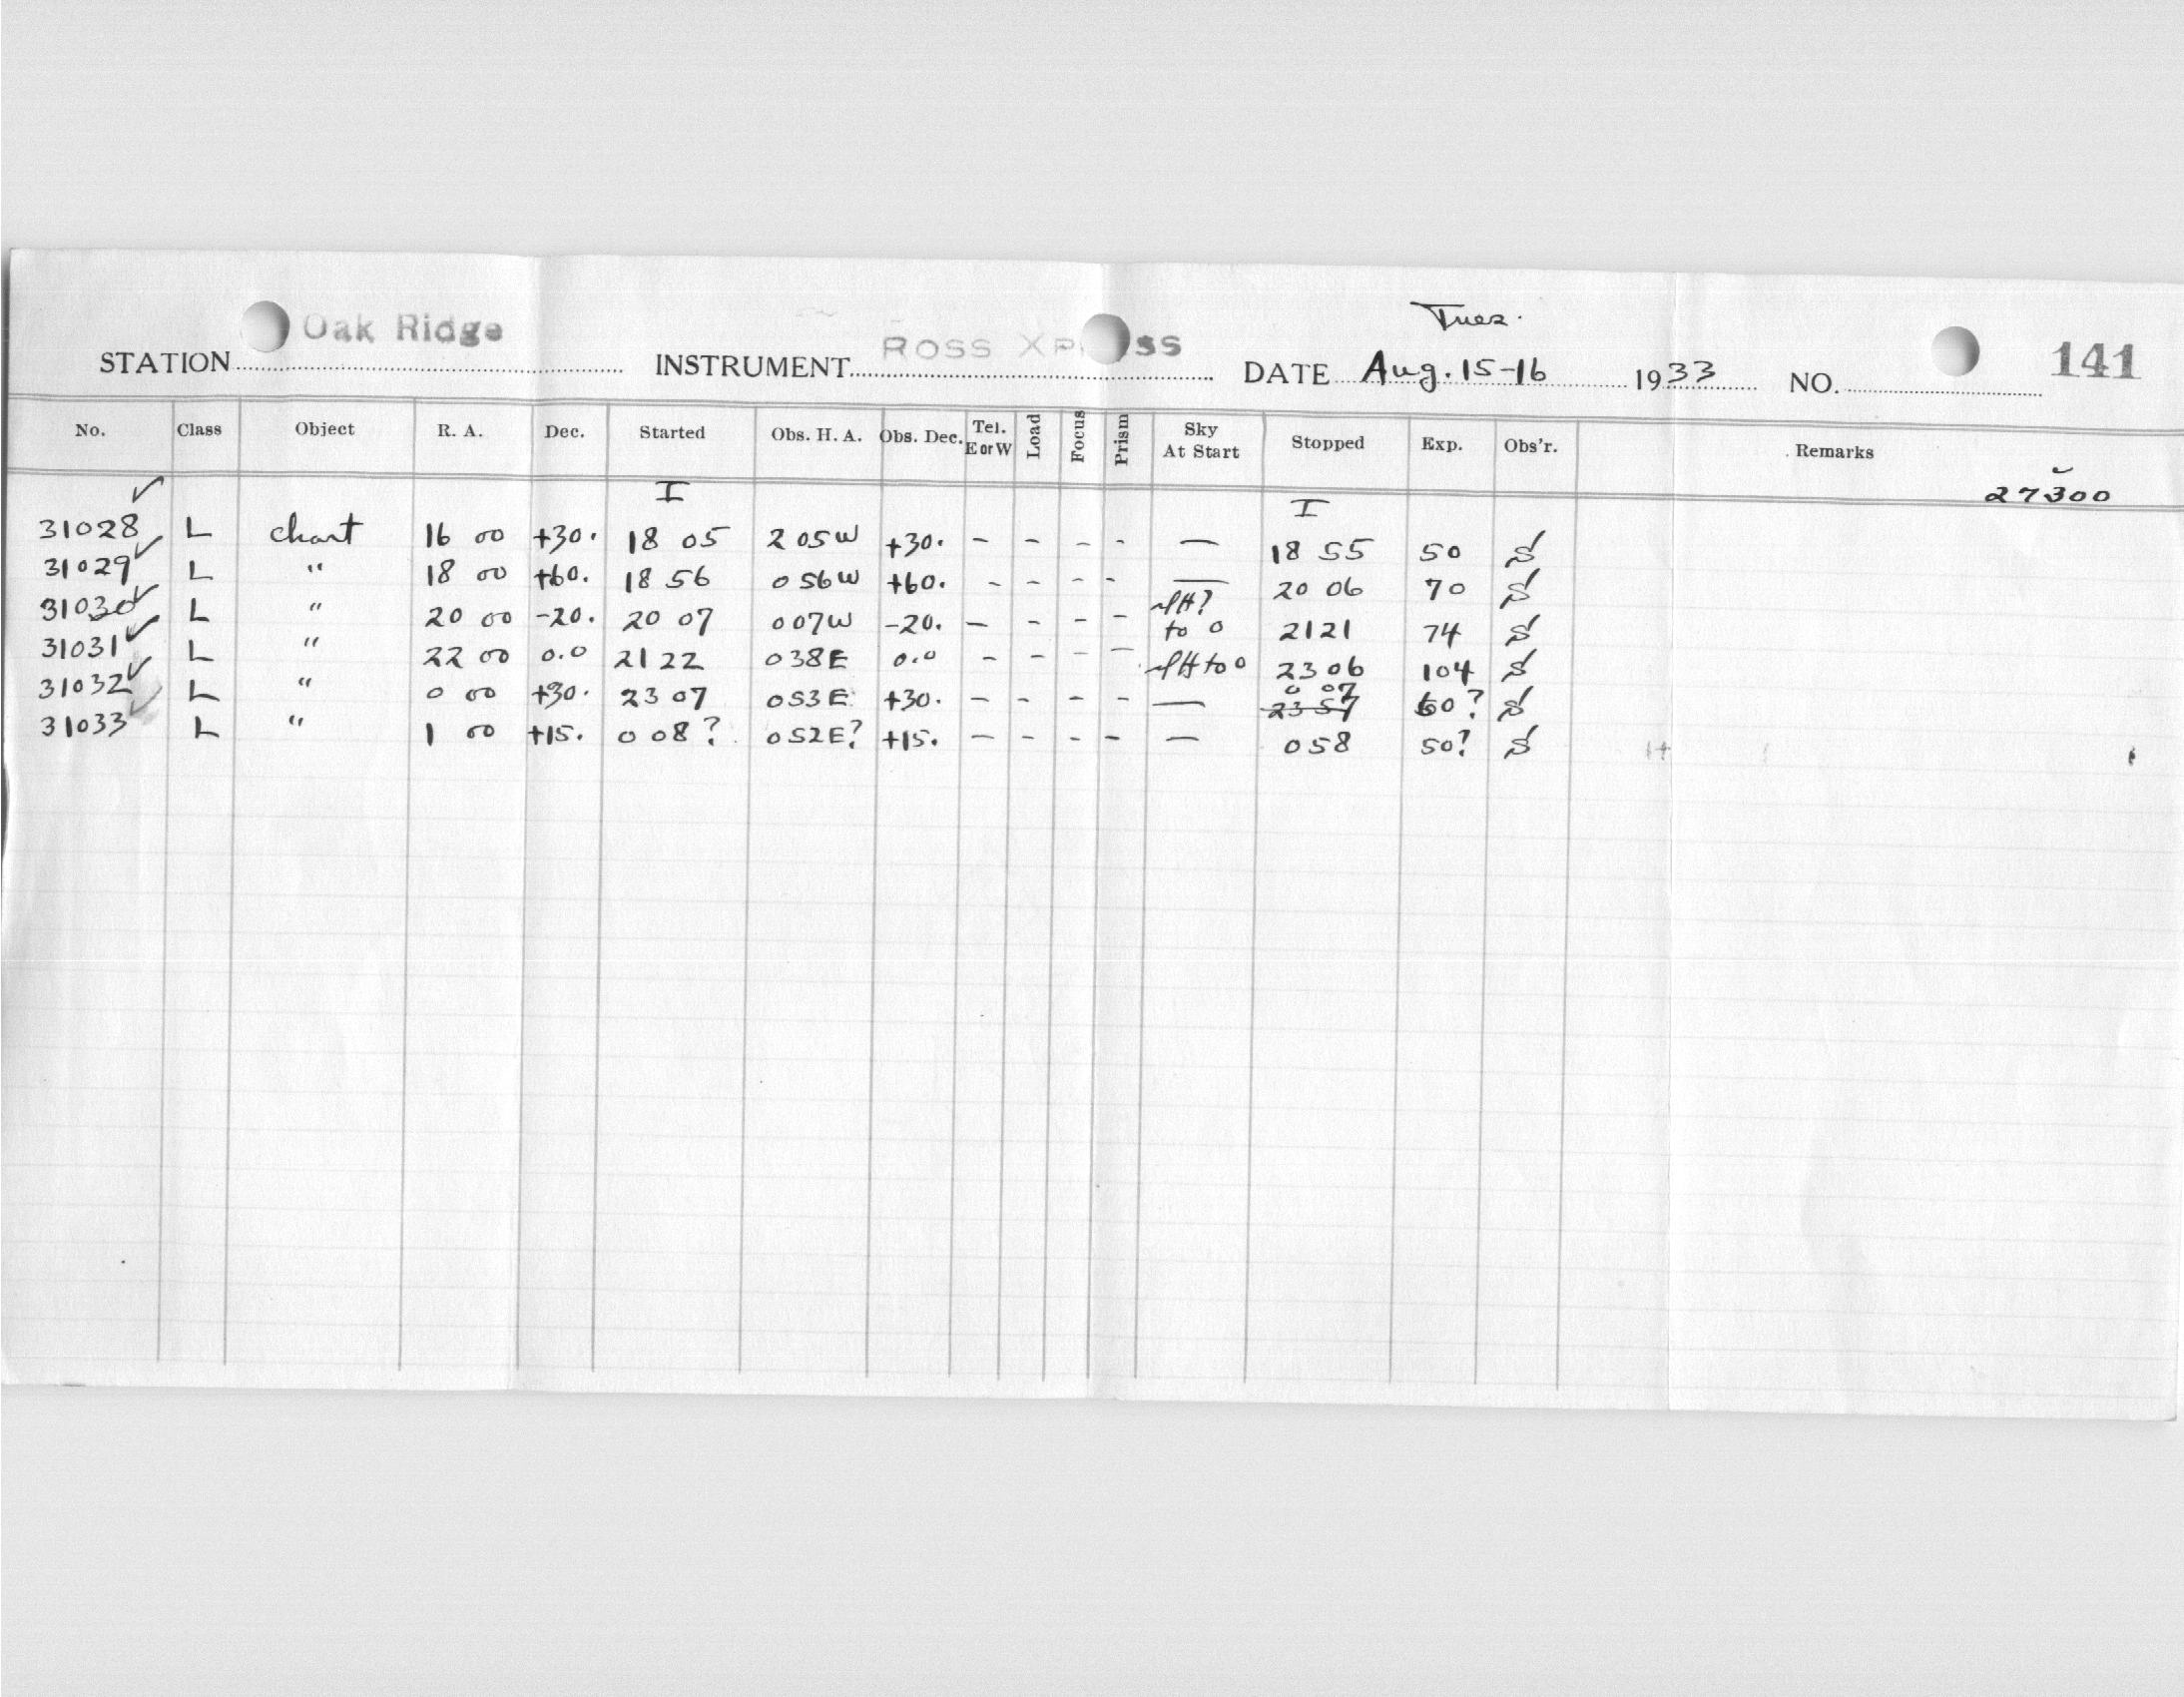 Tues.
STATION Oak Ridge INSTRUMENT Ross Xp ss DATE Aug. 15-16 1933 NO. 141
No. Class Object R. A. Dec. Started Obs. H. A. Obs. Dec. Tel. E or W Load Focus Prism Sky At Start Stopped Exp. Obs'r. Remarks
I I 27300
31028 L chart 16 00 +30. 18 05 2 05W +30. - - - - — 18 55 50 S
31029 L " 18 00 +60. 18 56 0 56W +60. - - - - — 20 06 70 S
31030 L " 20 00 -20. 20 07 0 07W -20. - - - - to 0 21 21 74 S
31031 L " 22 00 0.0 21 22 0 38E 0.0 - - - - to 0 23 06 104 S
31032 L " 0 00 +30. 23 07 0 53E +30. - - - - — 23 57 0 07 60? S
31033 L " 1 00 +15. 0 08? 0 52E? +15. - - - - — 0 58 50? S